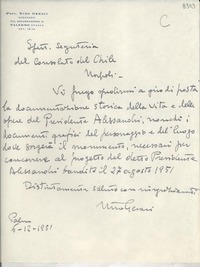 PROF. NINO GERACI
SCULTORE
PALERMO (ITALIA)
8393
C
Spett. Segreteria
del Consolato del Chile
Napoli.-
Vi prego spedirmi a giro di posta
la documentazione storica della vita e delle
opere del Presidente Alessandri, nonchè i
documenti grafici del personaggio e del luogo
dove sorgerà il monumento, necessari per
concorrere al progetto del detto Presidente
Alessandri bandito il 27 agosto 1951
Distintamente saluto con ringraziamenti
Nino Geraci
Palermo
4-12-1951